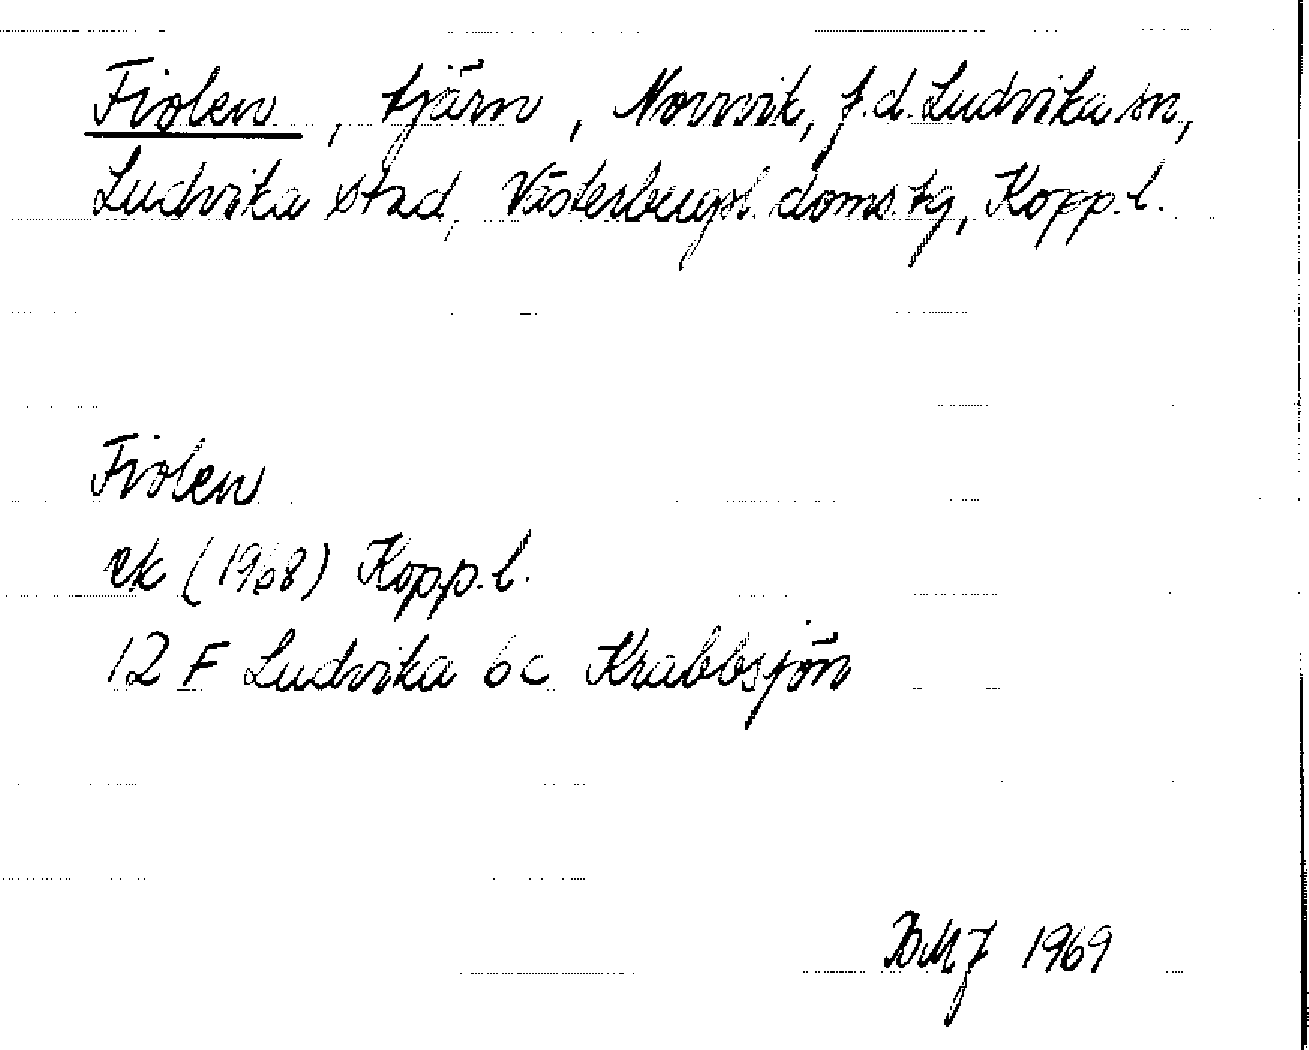 Fiolen, tjärn, Norrvik, f.d. Ludvika sn,
Ludvika stad, Västerbergsl. doms.tg, Kopp.l.
Fiolen
ek (1968) Kopp.l.
12 F Ludvika 6c Krabbsjön
BMJ 1969